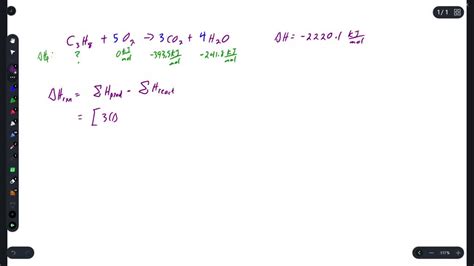 C₃H₈ + 5O₂ → 3CO₂ + 4H₂O ΔH = -2220.1 kJ/mol
ΔHf: ? 0 kJ/mol -393.5 kJ/mol -241.8 kJ/mol
ΔHrxn = ΣHprod - ΣHreact
= [3(
1 / 1